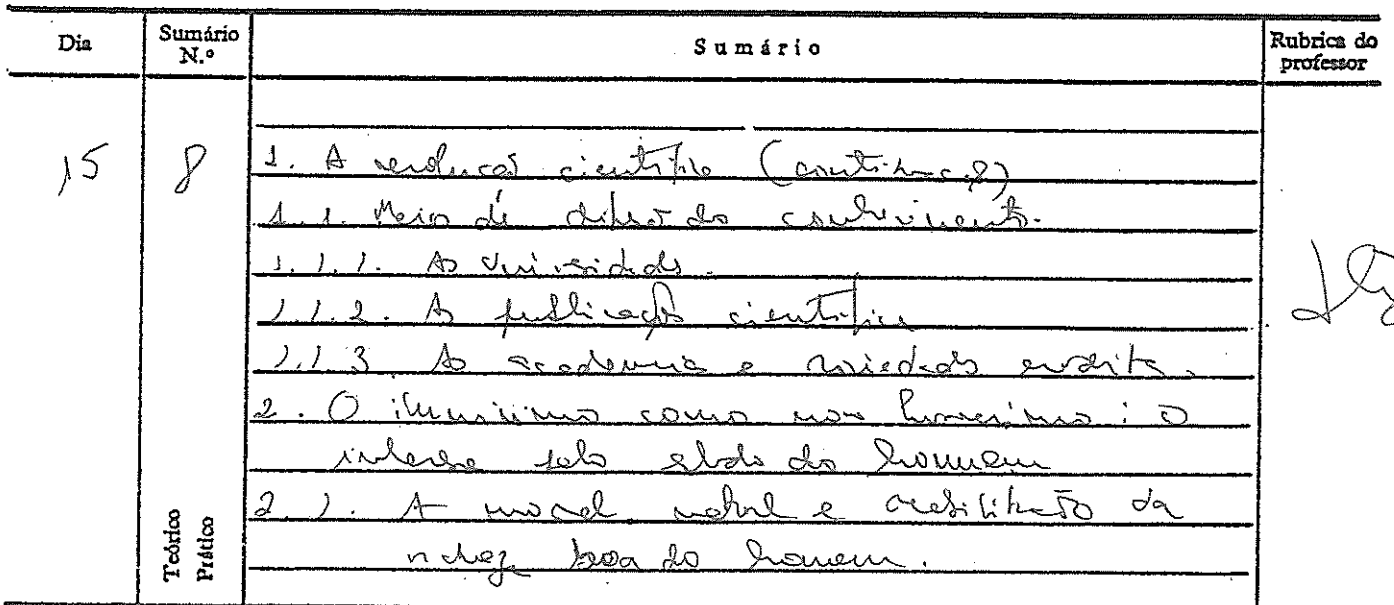 Dia
Sumário N.º
Sumário
Rubrica do professor
15
8
1. A revolução científica (continuação)
1.1. Meios de difusão do conhecimento.
1.1.1. As Universidades.
1.1.2. As publicações científicas
1.1.3. As academias e sociedades eruditas.
2. O iluminismo como novo humanismo: o
interesse pelo estudo do homem
2.1. A moral natural e a credibilização da
natureza boa do homem.
Teórico
Prático